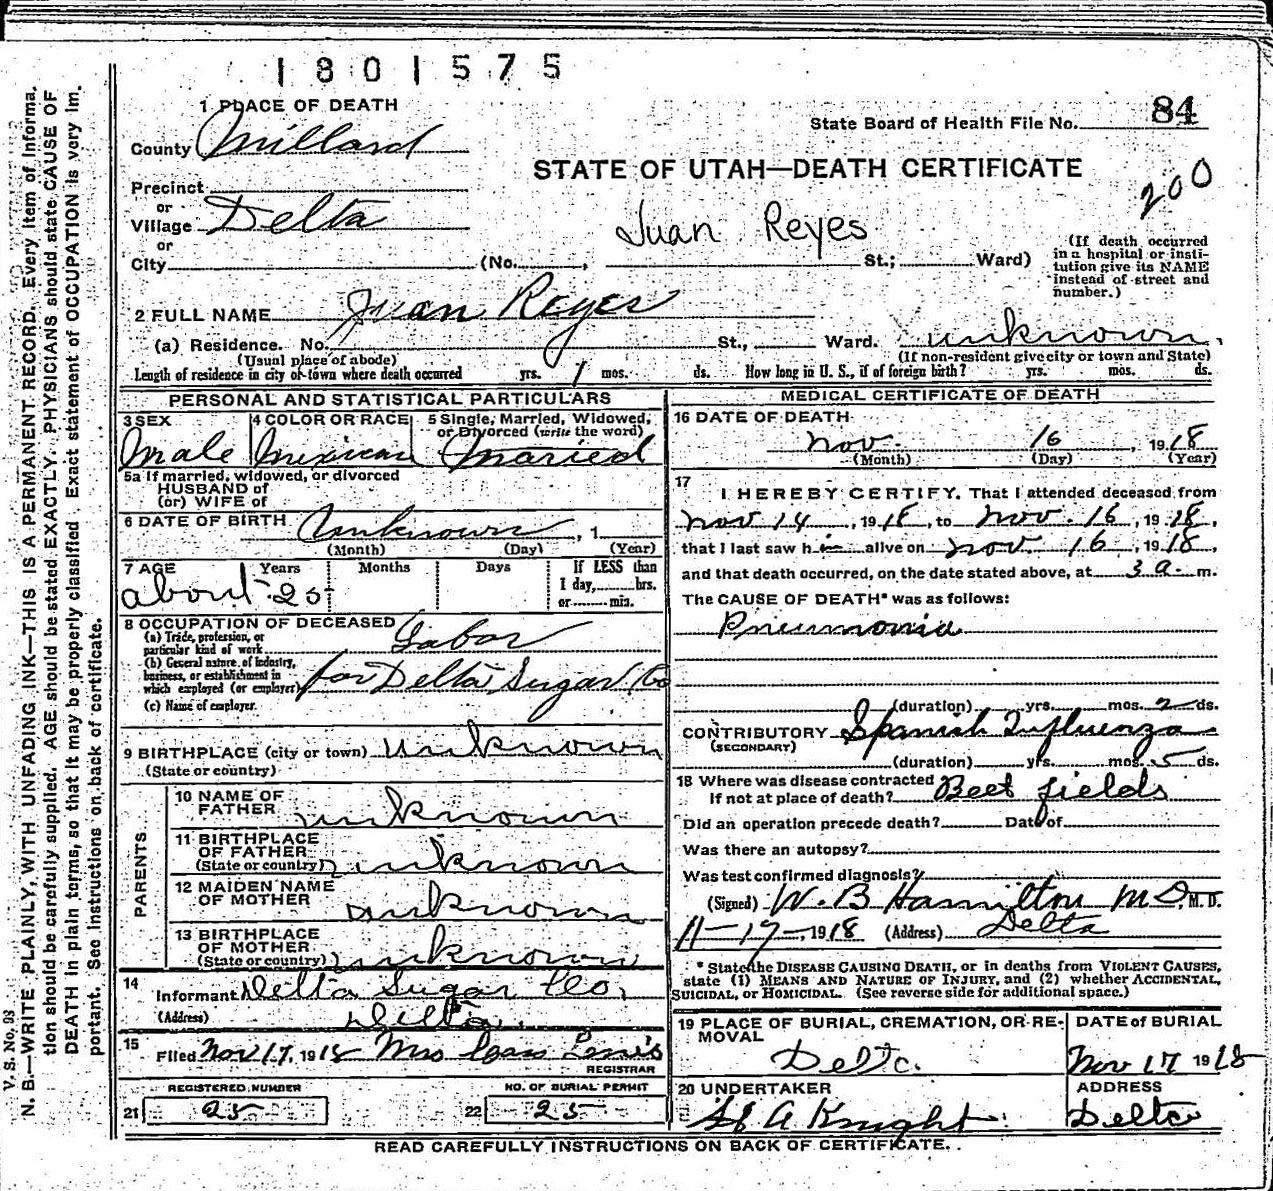 1801575
1 PLACE OF DEATH
84
State Board of Health File No.
County Millard
STATE OF UTAH—DEATH CERTIFICATE
200
Precinct
or
Village Delta
Juan Reyes
or
City (No. , St.; Ward)
(If death occurred
in a hospital or insti-
tution give its NAME
instead of street and
number.)
2 FULL NAME Juan Reyes
(a) Residence. No. St., Ward. unknown.
(Usual place of abode) (If non-resident give city or town and State)
Length of residence in city or town where death occurred yrs. 1 mos. ds. How long in U. S., if of foreign birth? yrs. mos. ds.
PERSONAL AND STATISTICAL PARTICULARS
3 SEX 4 COLOR OR RACE 5 Single, Married, Widowed,
or Divorced (write the word)
Male Mexican Married
5a If married, widowed, or divorced
HUSBAND of
(or) WIFE of
6 DATE OF BIRTH Unknown , 1
(Month) (Day) (Year)
7 AGE Years Months Days If LESS than
1 day, hrs.
or min.
about 25
8 OCCUPATION OF DECEASED
(a) Trade, profession, or
particular kind of work Labor
(b) General nature of industry,
business, or establishment in
which employed (or employer) for Delta Sugar Co
(c) Name of employer.
9 BIRTHPLACE (city or town) unknown
(State or country)
PARENTS
10 NAME OF
FATHER unknown
11 BIRTHPLACE
OF FATHER
(State or country) unknown
12 MAIDEN NAME
OF MOTHER unknown
13 BIRTHPLACE
OF MOTHER
(State or country) unknown
14
Informant Delta Sugar Co.
(Address) Delta.
15
Filed Nov 17, 1918 Mrs
REGISTRAR
REGISTERED NUMBER NO. OF BURIAL PERMIT
21 25 22 25
MEDICAL CERTIFICATE OF DEATH
16 DATE OF DEATH
Nov. 16 , 1918
(Month) (Day) (Year)
17
I HEREBY CERTIFY. That I attended deceased from
Nov 14 , 1918, to Nov. 16 , 1918,
that I last saw him alive on Nov. 16 , 1918,
and that death occurred, on the date stated above, at 3 a. m.
The CAUSE OF DEATH* was as follows:
Pneumonia
(duration) yrs. mos. 2 ds.
CONTRIBUTORY Spanish Influenza
(SECONDARY)
(duration) yrs. mos. 5 ds.
18 Where was disease contracted
If not at place of death? Beet fields
Did an operation precede death? Date of
Was there an autopsy?
Was test confirmed diagnosis?
(Signed) W. B Hamilton M D, M. D.
11-17-, 1918 (Address) Delta
* State the DISEASE CAUSING DEATH, or in deaths from VIOLENT CAUSES,
state (1) MEANS AND NATURE OF INJURY, and (2) whether ACCIDENTAL,
SUICIDAL, or HOMICIDAL. (See reverse side for additional space.)
19 PLACE OF BURIAL, CREMATION, OR RE-
MOVAL
Delta.
DATE of BURIAL
Nov 17 1918
20 UNDERTAKER
A Knight
ADDRESS
Delta
READ CAREFULLY INSTRUCTIONS ON BACK OF CERTIFICATE.
V. S. No. 93
N. B.—WRITE PLAINLY, WITH UNFADING INK—THIS IS A PERMANENT RECORD. Every item of informa-
tion should be carefully supplied. AGE should be stated EXACTLY. PHYSICIANS should state CAUSE OF
DEATH in plain terms, so that it may be properly classified. Exact statement of OCCUPATION is very im-
portant. See instructions on back of certificate.